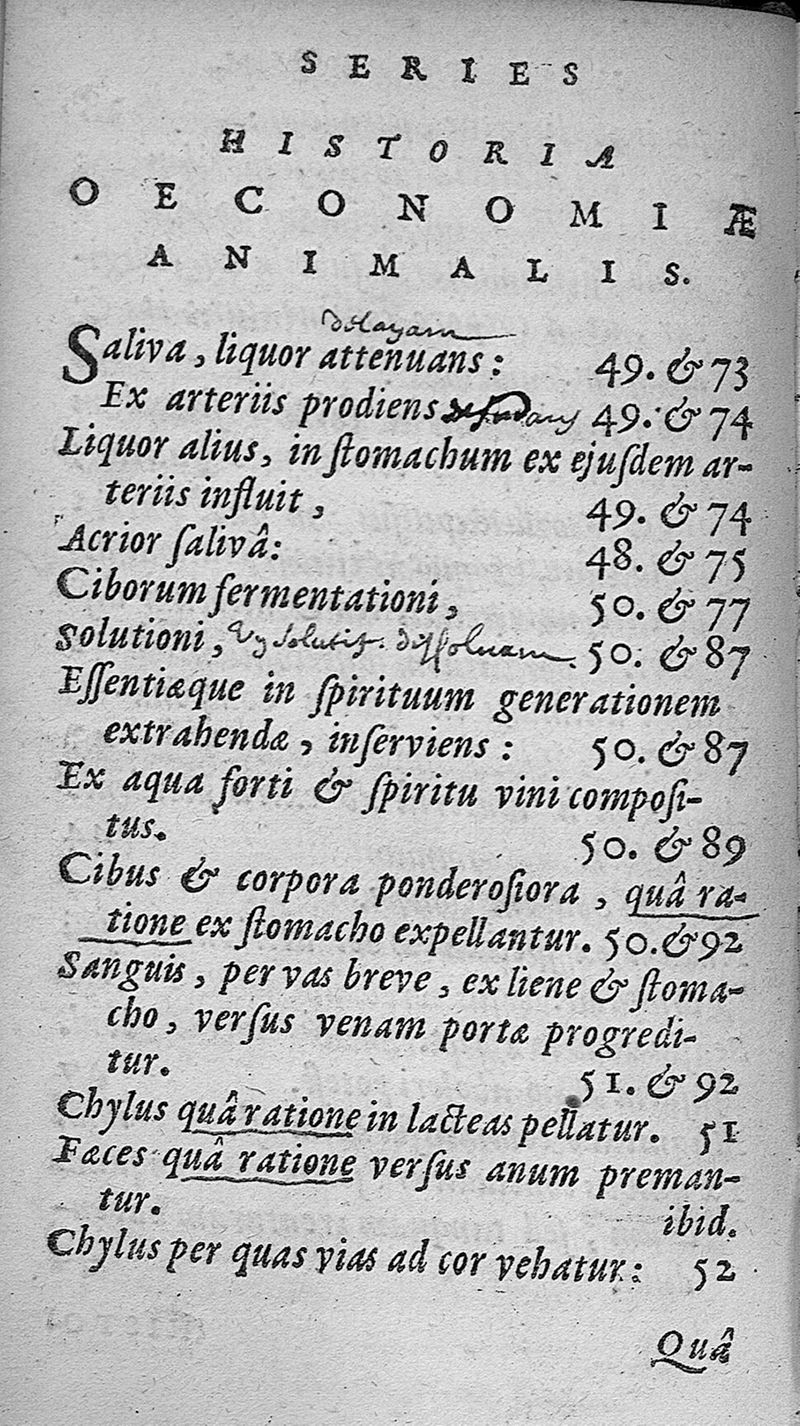 SERIES
HISTORIA
OECONOMIÆ
ANIMALIS.
Saliva, liquor attenuans: 49. & 73
Ex arteriis prodiens 49. & 74
Liquor alius, in ſtomachum ex ejuſdem ar-
teriis influit, 49. & 74
Acrior ſalivâ: 48. & 75
Ciborum fermentationi, 50. & 77
Solutioni, 50. & 87
Eſſentiæque in ſpirituum generationem
extrahendæ, inſerviens: 50. & 87
Ex aqua forti & ſpiritu vini compoſi-
tus. 50. & 89
Cibus & corpora ponderoſiora, quâ ra-
tione ex ſtomacho expellantur. 50. & 92
Sanguis, per vas breve, ex liene & ſtoma-
cho, verſus venam portæ progredi-
tur. 51. & 92
Chylus quâ ratione in lacteas pellatur. 51
Fæces quâ ratione verſus anum preman-
tur. ibid.
Chylus per quas vias ad cor vehatur: 52
Quâ